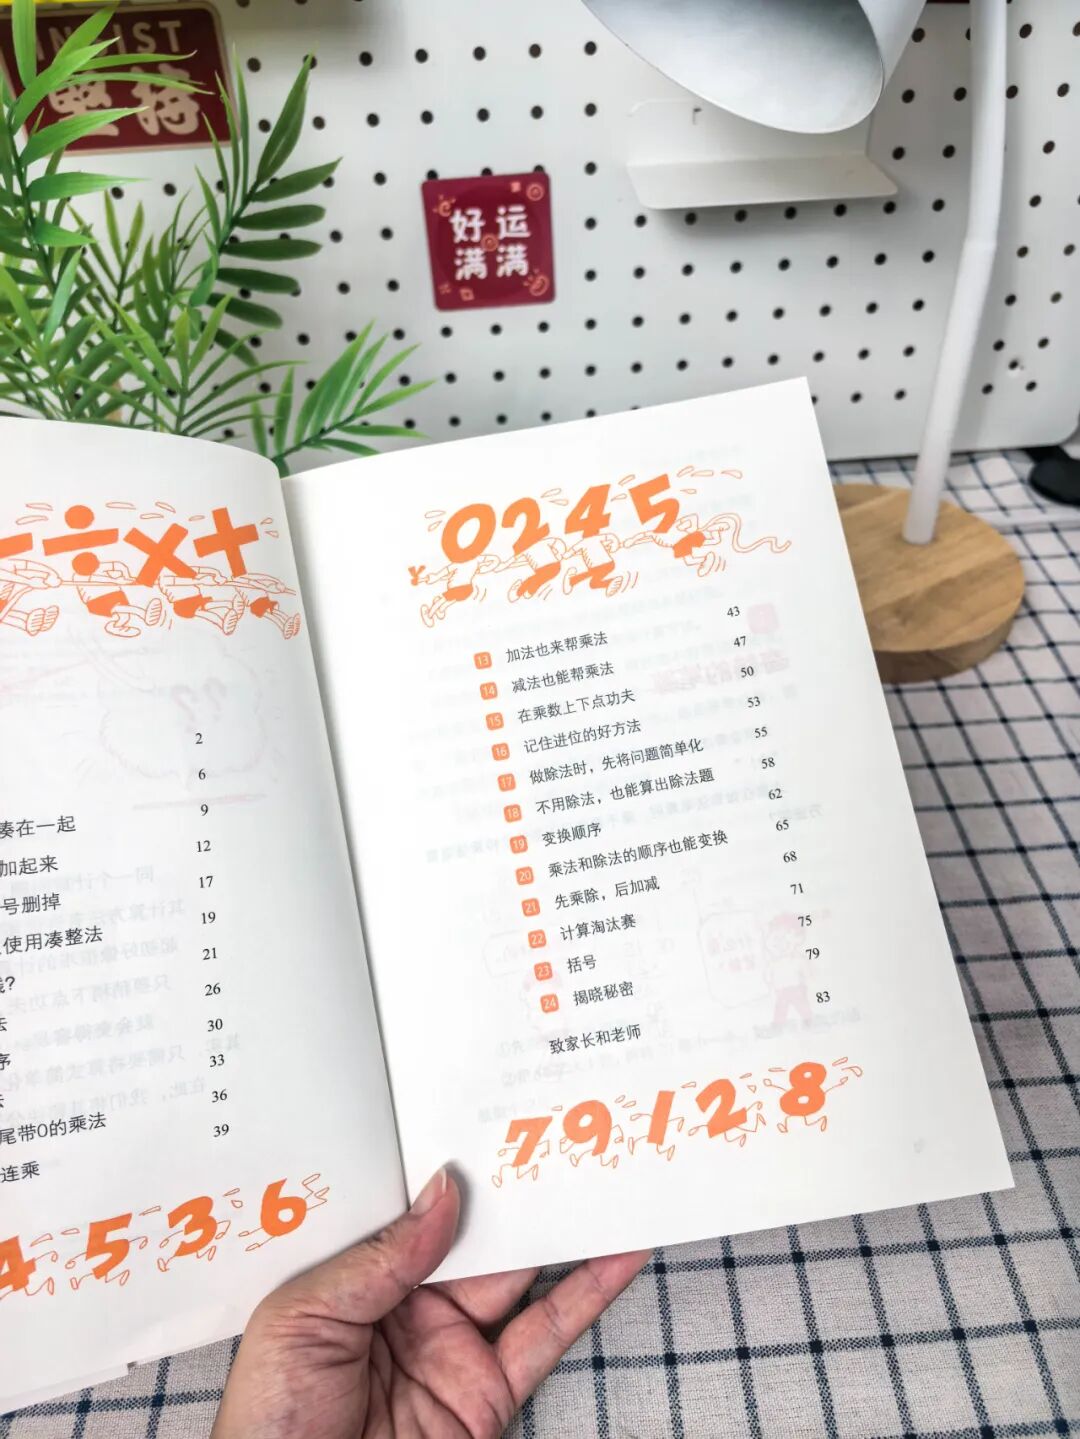 INSIST
坚持
好运
满满
− ÷ × +
2
6
凑在一起 9
加起来 12
号删掉 17
使用凑整法 19
21
26
序 30
法 33
尾带0的乘法 36
连乘 39
4 5 3 6
0 2 4 5
13 加法也来帮乘法 43
14 减法也能帮乘法 47
15 在乘数上下点功夫 50
16 记住进位的好方法 53
17 做除法时，先将问题简单化 55
18 不用除法，也能算出除法题 58
19 变换顺序 62
20 乘法和除法的顺序也能变换 65
21 先乘除，后加减 68
22 计算淘汰赛 71
23 括号 75
24 揭晓秘密 79
致家长和老师 83
7 9 1 2 8